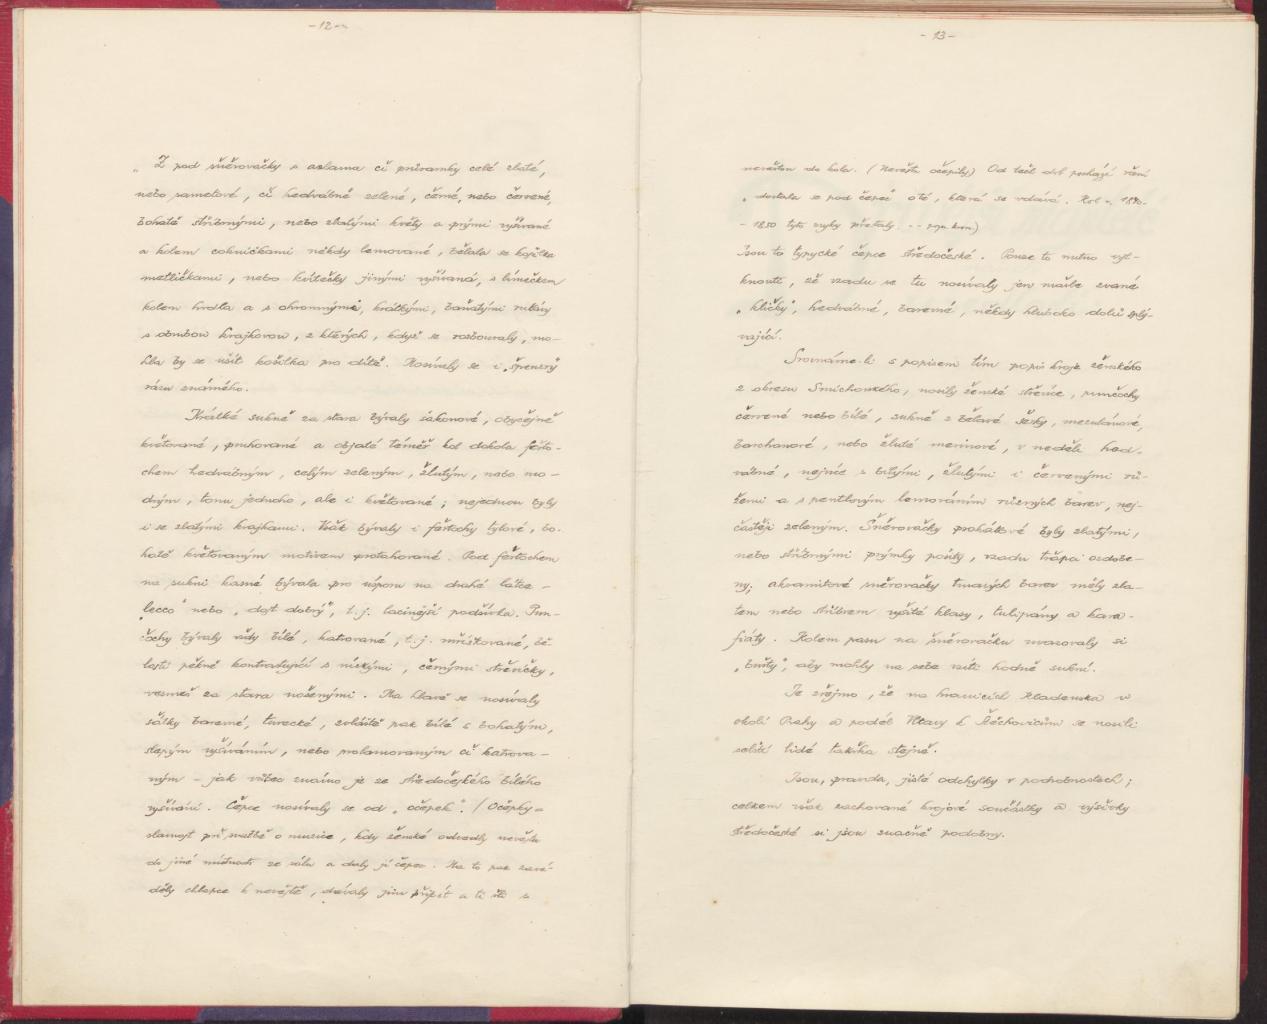 - 12 -
„ Z pod šněrovačky s aslama či průramky celé zlaté,
nebo sametové, či hedvábné zelené, černé, nebo červené,
bohatě stříbrnými, nebo zlatými květy a prýmy vyšívané
a kolem cokničkami někdy lemované, bělala se košilka
metličkami, nebo kvítečky jinými vyšívaná, s límečkem
kolem hrdla a s ohromnými, krátkými, baňatými rukávy
s obrubou krajkovou, z kterých, když se rozbouraly, mo-
hla by se ušít košilka pro dítě. Nosívaly se i „špenzry
rázu známého.
Krátké sukně za stara bývaly šákonové, obyčejně
květované, pukované a objaté téměř kol dokola fěrto-
chem hedvábným, celým zeleným, žlutým, nebo mo-
drým, tonu jednoho, ale i květované; nejednou byly
i se zlatými krajkami. Však bývaly i fěrtochy tylové, bo-
hatě květovaným motivem protahované. Pod fěrtochem
na sukni kasné bývala pro úsporu na drahé látce -
„lecco" nebo „dost dobrý", t. j. lacinější podšívka. Pun-
čochy bývaly vždy bílé, katrované, t. j. mřížkované, bě-
lostí pěkně kontrastující s nízkými, černými střevíčky,
vesměs za stara nošenými. Na hlavě se nosívaly
šátky barevné, turecké, zvláště pak bílé s bohatým,
slepým vyšíváním, nebo prolamovaným či katrova-
ným - jak vůbec známo je ze středočeského bílého
vyšívání. Čepce nosívaly se od „očepek". / Očepky =
slavnost při svatbě o muzice, kdy ženské odvedly nevěstu
do jiné místnosti ze sálu a daly jí čepec. Na to pak zavá-
děly chlapce k nevěstě, dávaly jim připít a ti šli s
- 13 -
nevěstou do kola. (Nevěstu očepily) Od těch dob pochází rčení
„ dostala se pod čepec o té, která se vdává. Kol r. 1840-
- 1850 tyto zvyky přestaly. -
Jsou to typycké čepce středočeské. Pouze tu nutno vyt-
knouti, že vzadu se tu nosívaly jen mašle zvané
„ kličky", hedvábné, barevné, někdy hluboko dolů splý-
vající.
Srovnáme-li s popisem tím popis kroje ženského
z obresu Smíchovského, nosily ženské střevíce, punčochy
červené nebo bílé, sukně z bělavé šerky, mezulánové,
barchanové, nebo žluté merinové, v neděli hed-
vábné, nejvíce s bílými, žlutými i červenými rů-
žemi a s pentlovým lemováním různých barev, nej-
častěji zeleným. Šněrovačky brokátové byly zlatými,
nebo stříbrnými prýmky pošity, vzadu třapci ozdobe-
ny; aksamitové šněrovačky tmavých barev měly zla-
tem nebo stříbrem vyšité klasy, tulipány a kara-
fiáty. Kolem pasu na šněrovačku uvazovaly si
„buřty", aby mohly na sebe vzíti hodně sukní.
Je zřejmo, že na hranicích Kladenska v
okolí Prahy a podél Vltavy k Štěchovicům se nosili
selští lidé takřka stejně.
Jsou, pravda, jisté odchylky v podrobnostech;
celkem však zachované krojové součástky a výšivky
středočeské si jsou značně podobny.